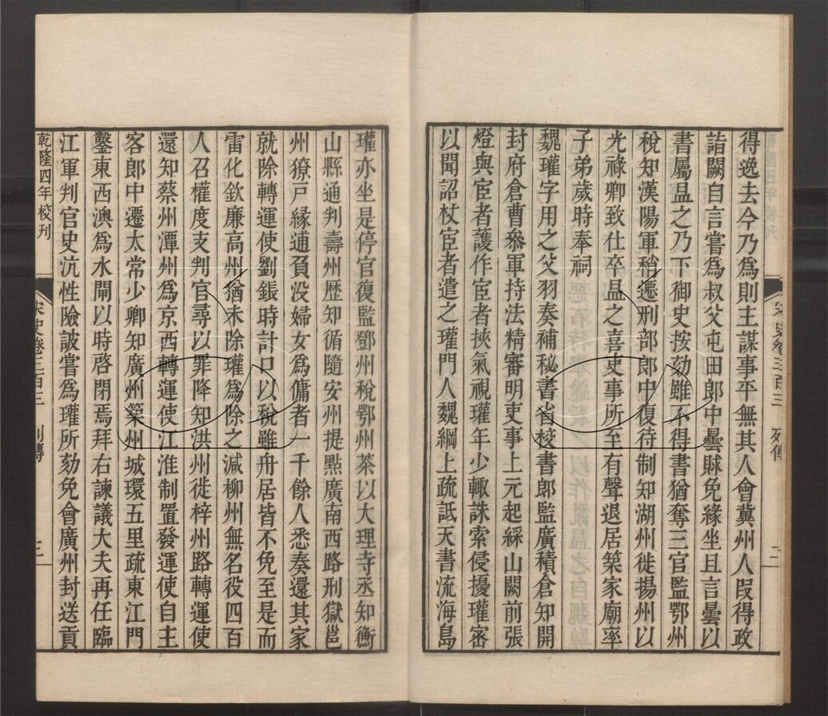 得逸去今乃為則主謀事平無其人會冀州人段得政
詣闕自言嘗為叔父屯田郎中曇賕免緣坐且言曇以
書屬昷之乃下御史按劾雖不得書猶奪三官監鄂州
稅知漢陽軍稍遷刑部郎中復待制知湖州徙揚州以
光祿卿致仕卒昷之喜吏事所至有聲退居築家廟率
子弟歲時奉祠
魏瓘字用之父羽奏補秘書省校書郎監廣積倉知開
封府倉曹參軍持法精審明吏事上元起綵山闕前張
燈與宦者護作宦者挾氣視瓘年少輒誅索侵擾瓘密
以聞詔杖宦者遣之瓘門人魏綱上疏詆天書流海島
宋史卷三百三 列傳 二
瓘亦坐是停官復監鄧州稅鄂州茶以大理寺丞知衡
山縣通判壽州歷知循隨安州提點廣南西路刑獄邕
州獠戶緣逋負沒婦女為傭者一千餘人悉奏還其家
就除轉運使劉鋹時計口以稅雖舟居皆不免至是而
雷化欽廉高州猶未除瓘為除之減柳州無名役四百
人召權度支判官尋以罪降知洪州徙梓州路轉運使
還知蔡州潭州為京西轉運使江淮制置發運使自主
客郎中遷太常少卿知廣州築州城環五里疏東江門
鑿東西澳為水閘以時啓閉焉拜右諫議大夫再任臨
江軍判官史沆性險詖嘗為瓘所劾免會廣州封送貢
乾隆四年校刊 宋史卷三百三 列傳 三